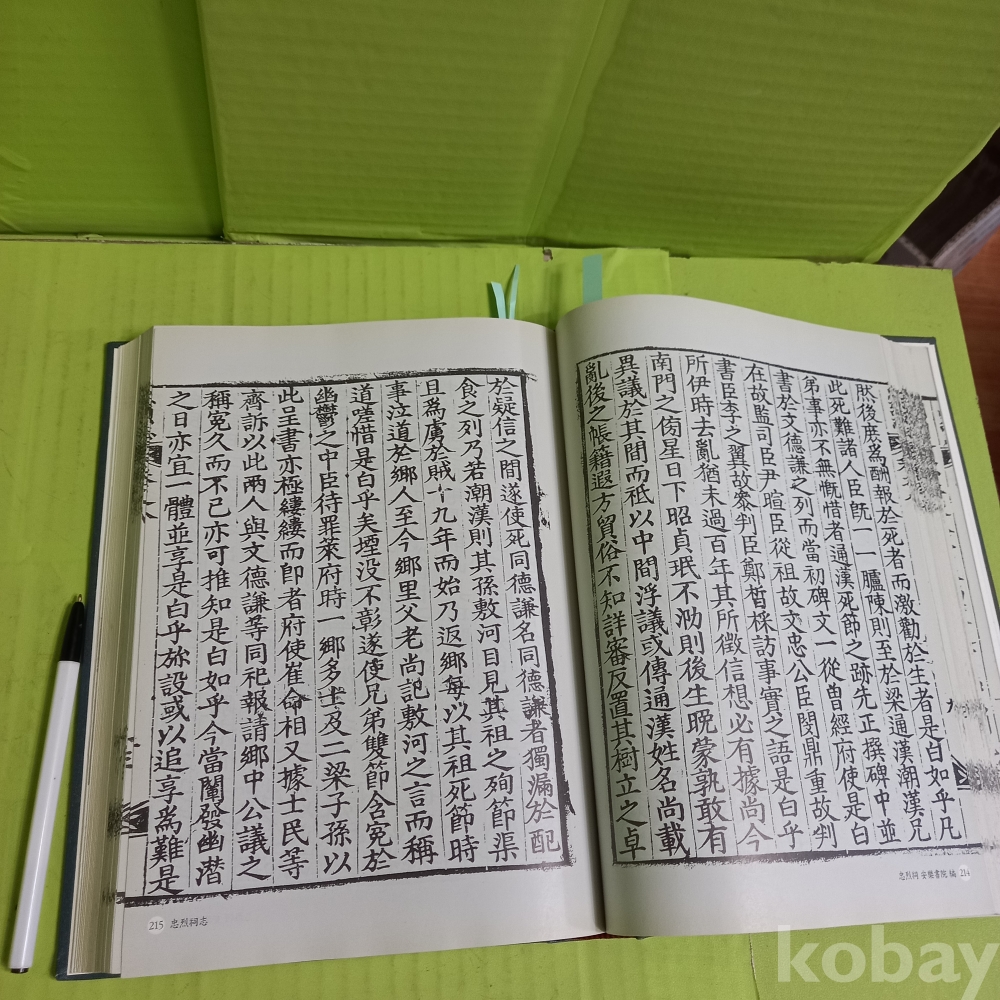 然後庶爲酬報於死者而激勸於生者是白如乎凡
此死難諸人臣旣一一臚陳則至於梁通漢潮漢兄
弟事亦不無慨惜者通漢死節之跡先正撰碑中並
書於文德謙之列而當初碑文一從曾經府使是白
在故監司臣尹暄臣從祖故文忠公臣閔鼎重故判
書臣李之翼故參判臣鄭晳採訪事實之語是白乎
所伊時去亂猶未過百年其所徵信想必有據尚今
南門之傍星日下昭貞珉不泐則後生晩蒙孰敢有
異議於其間而祗以中間浮議或傳通漢姓名尚載
亂後之帳籍遐方貿俗不知詳審反置其樹立之卓
忠烈祠 安樂書院 編 214
於疑信之間遂使死同德謙名同德謙者獨漏於配
食之列乃若潮漢則其孫敷河目見其祖之殉節渠
旦爲虜於賊十九年而始乃返鄉每以其祖死節時
事泣道於鄉人至今鄉里父老尚記敷河之言而稱
道嗟惜是白乎矣堙没不彰遂使兄弟雙節含寃於
幽鬱之中臣待罪萊府時一鄉多士及二梁子孫以
此呈書亦極縷縷而卽者府使崔命相又據士民等
齊訴以此兩人與文德謙等同祀報請鄉中公議之
稱寃久而不已亦可推知是白如乎今當闡發幽潛
之日亦宜一體並享是白乎旀設或以追享爲難是
215 忠烈祠志
kobay